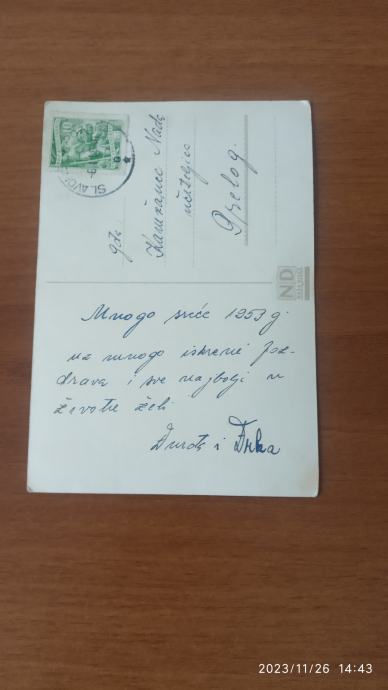 gđi.
Kamžajec Nada
učiteljica
Prelog.
SLAVO
ND
Mnogo sreće 1953 g.
uz mnogo iskreni poz-
drava i sve najbolji u
životu želi
Đurđa i
2023/11/26 14:43